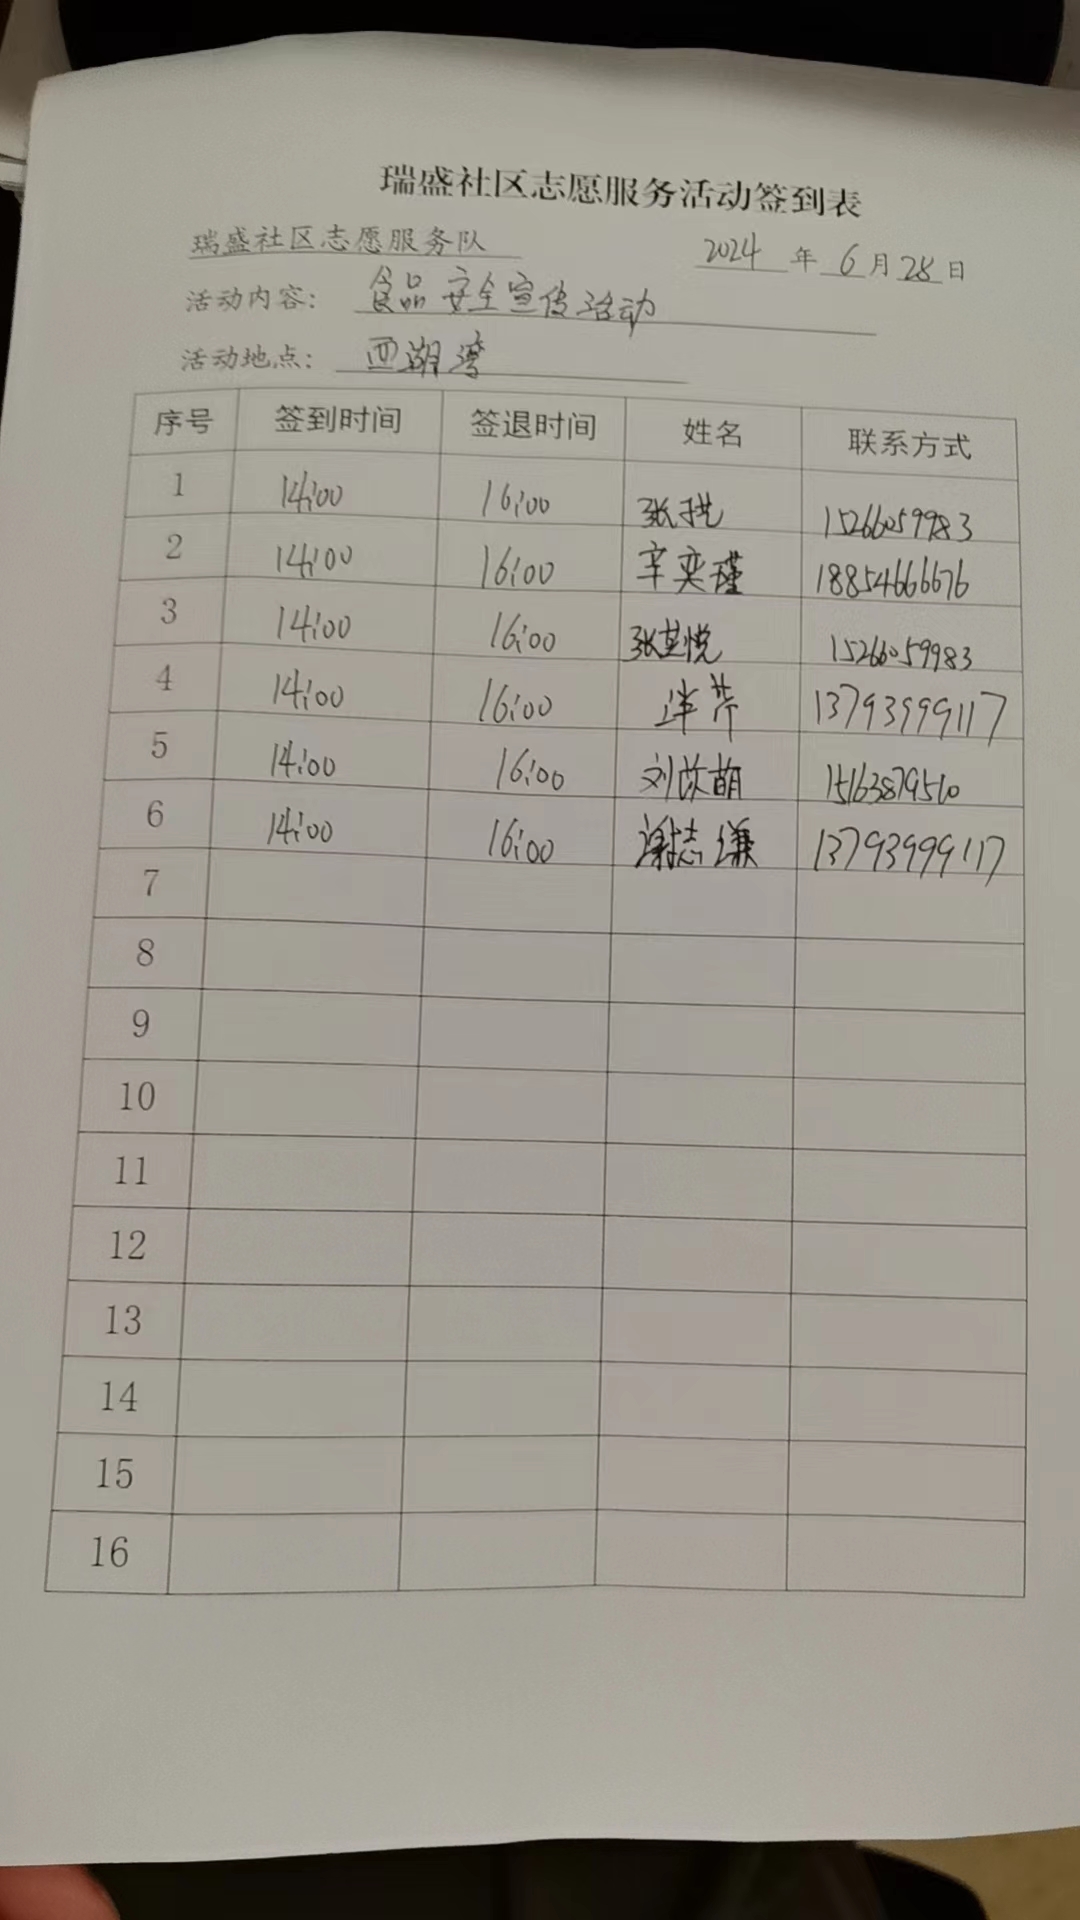 瑞盛社区志愿服务活动签到表
瑞盛社区志愿服务队 2024年6月28日
活动内容：食品安全宣传活动
活动地点：西湖湾
序号 签到时间 签退时间 姓名 联系方式
1 14:00 16:00 张珙 15266059983
2 14:00 16:00 辛奕瑾 18854666676
3 14:00 16:00 张芸悦 15266059983
4 14:00 16:00 芹 13793999117
5 14:00 16:00 刘萌 15163879510
6 14:00 16:00 谢志谦 13793999117
7
8
9
10
11
12
13
14
15
16